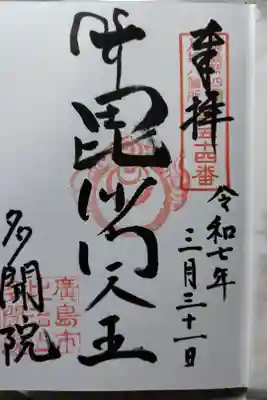 奉拝
令和七年
三月三十一日
毘沙門天王
多聞院
廣島市